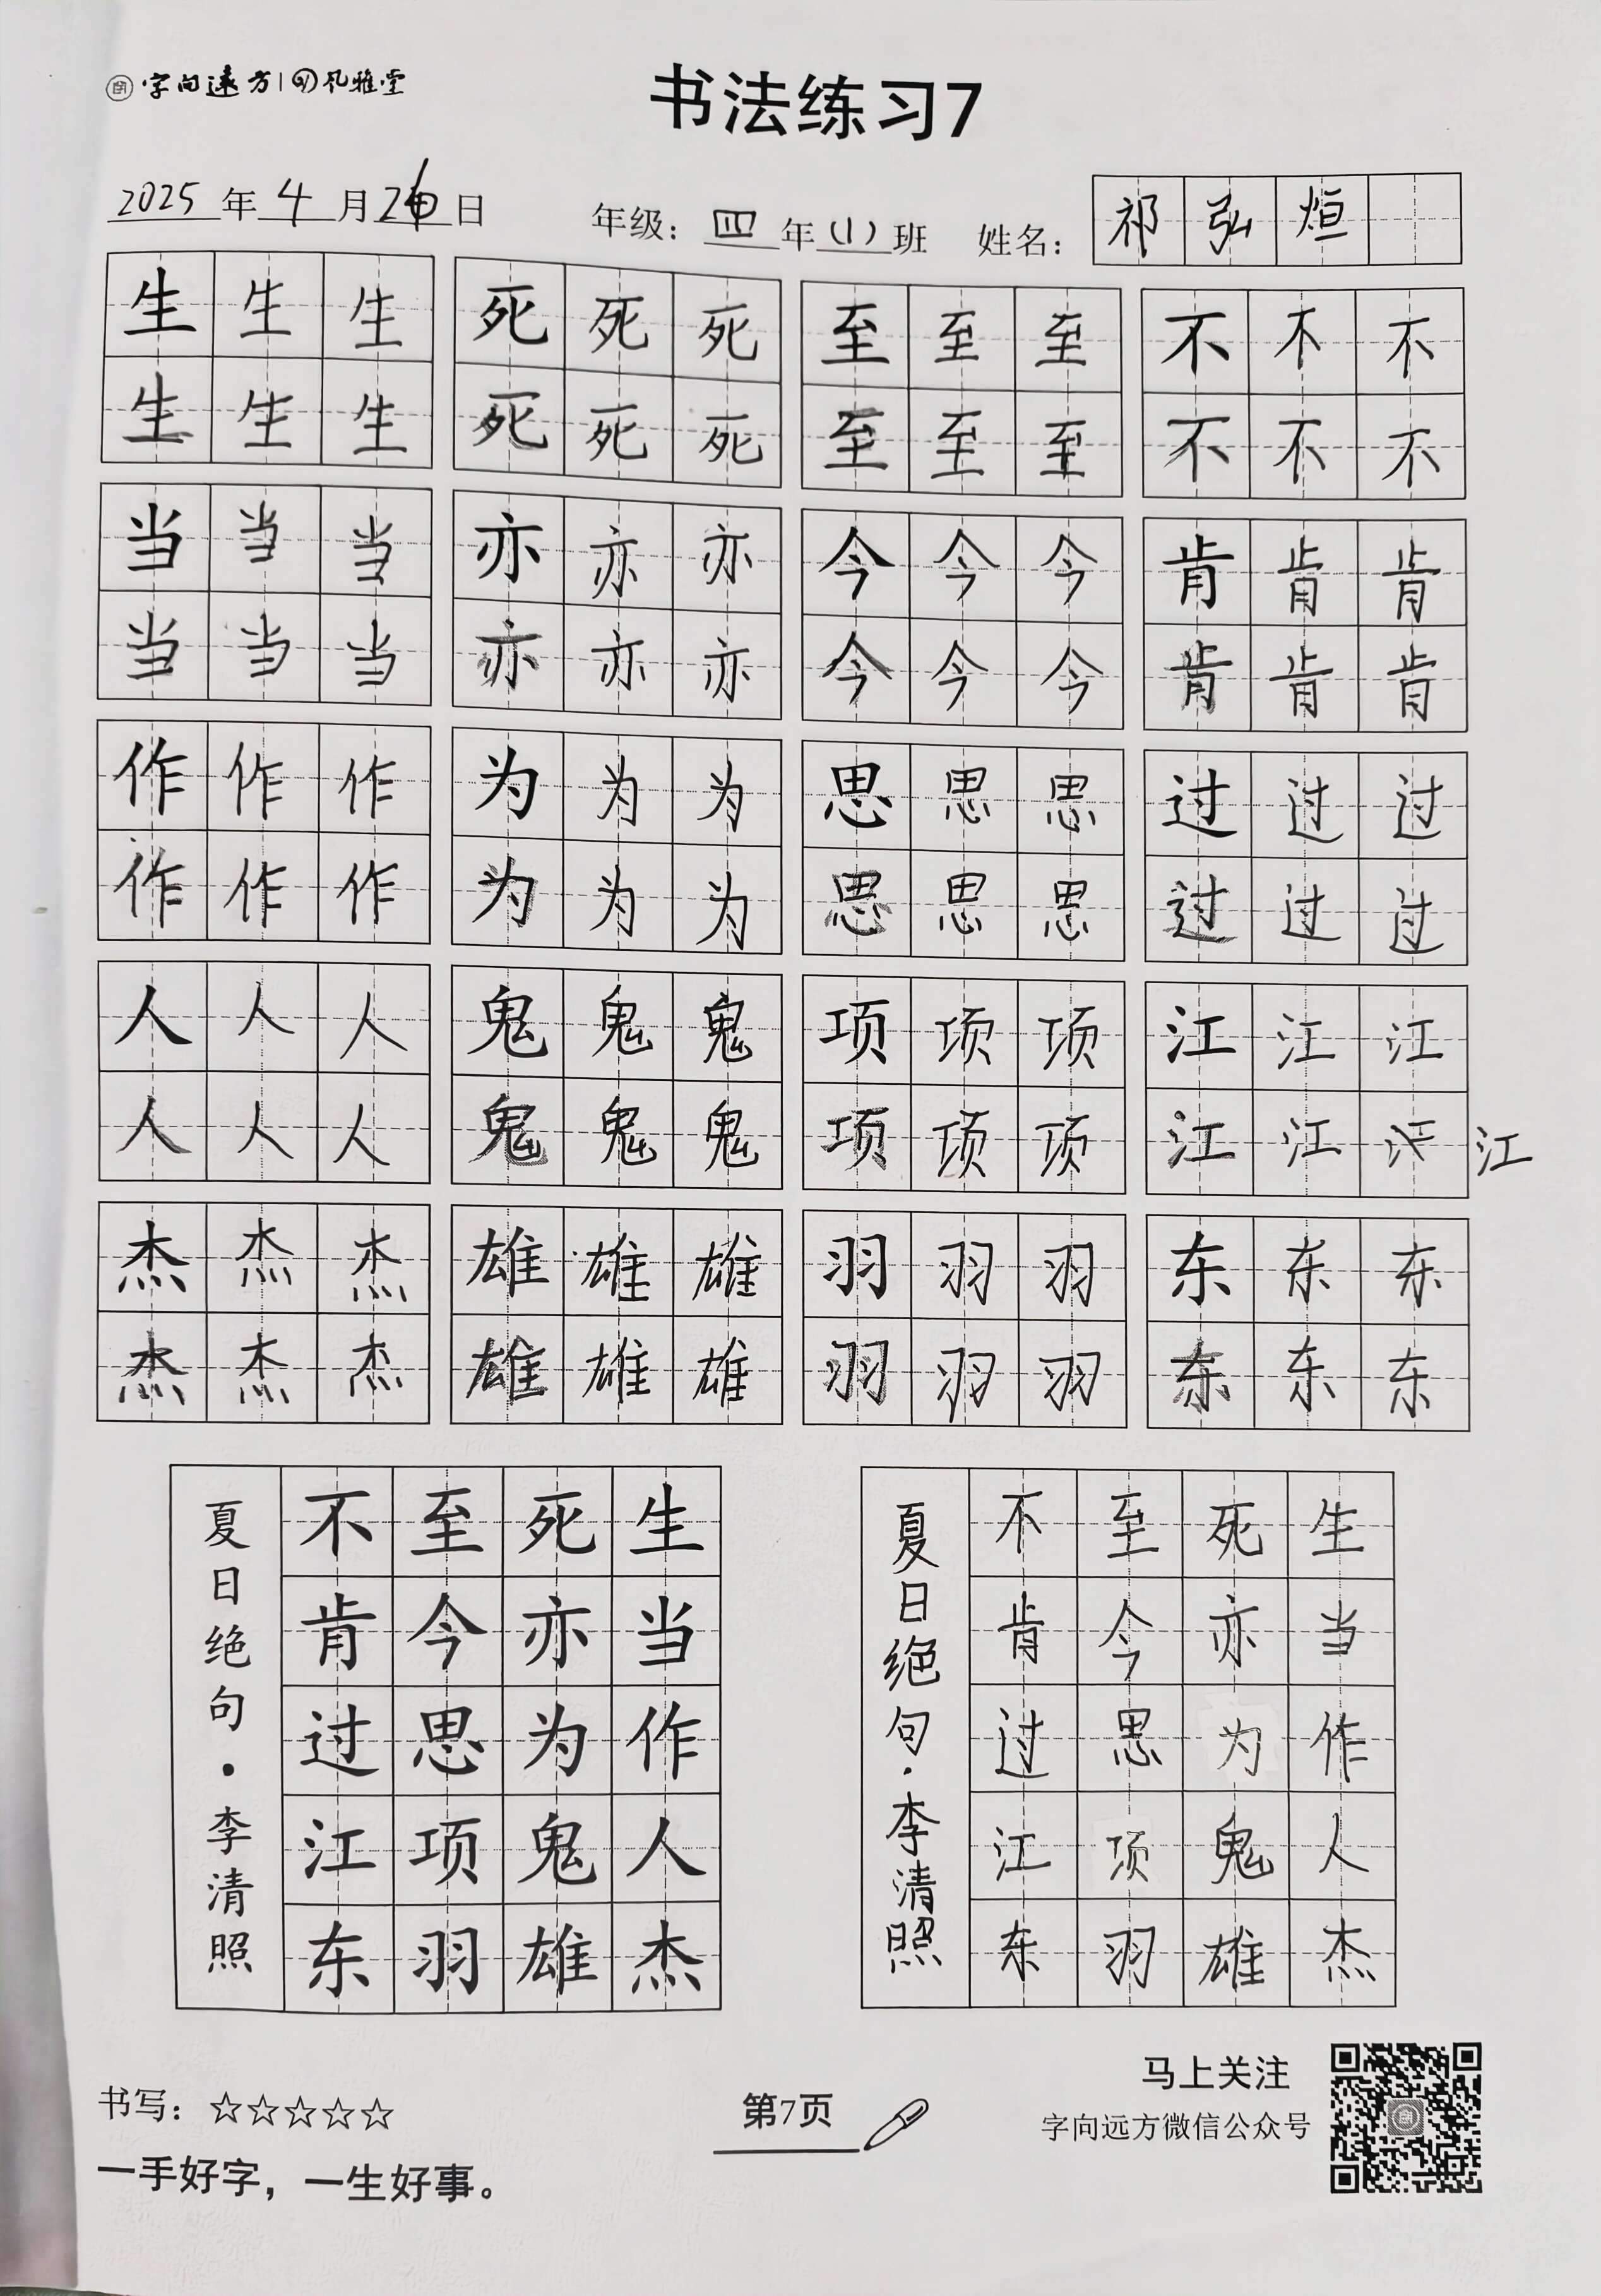 字向远方 | 孔雅堂
书法练习7
2025年4月26日 年级：四年(1)班 姓名：祁弘烜
生生生 死死死 至至至 不不不
生生生 死死死 至至至 不不不
当当当 亦亦亦 今今今 肯肯肯
当当当 亦亦亦 今今今 肯肯肯
作作作 为为为 思思思 过过过
作作作 为为为 思思思 过过过
人人人 鬼鬼鬼 项项项 江江江
人人人 鬼鬼鬼 项项项 江江江 江
杰杰杰 雄雄雄 羽羽羽 东东东
杰杰杰 雄雄雄 羽羽羽 东东东
生当作人杰
死亦为鬼雄
至今思项羽
不肯过江东
夏日绝句·李清照
生当作人杰
死亦为鬼雄
至今思项羽
不肯过江东
夏日绝句·李清照
书写：☆☆☆☆☆
一手好字，一生好事。
第7页
马上关注
字向远方微信公众号